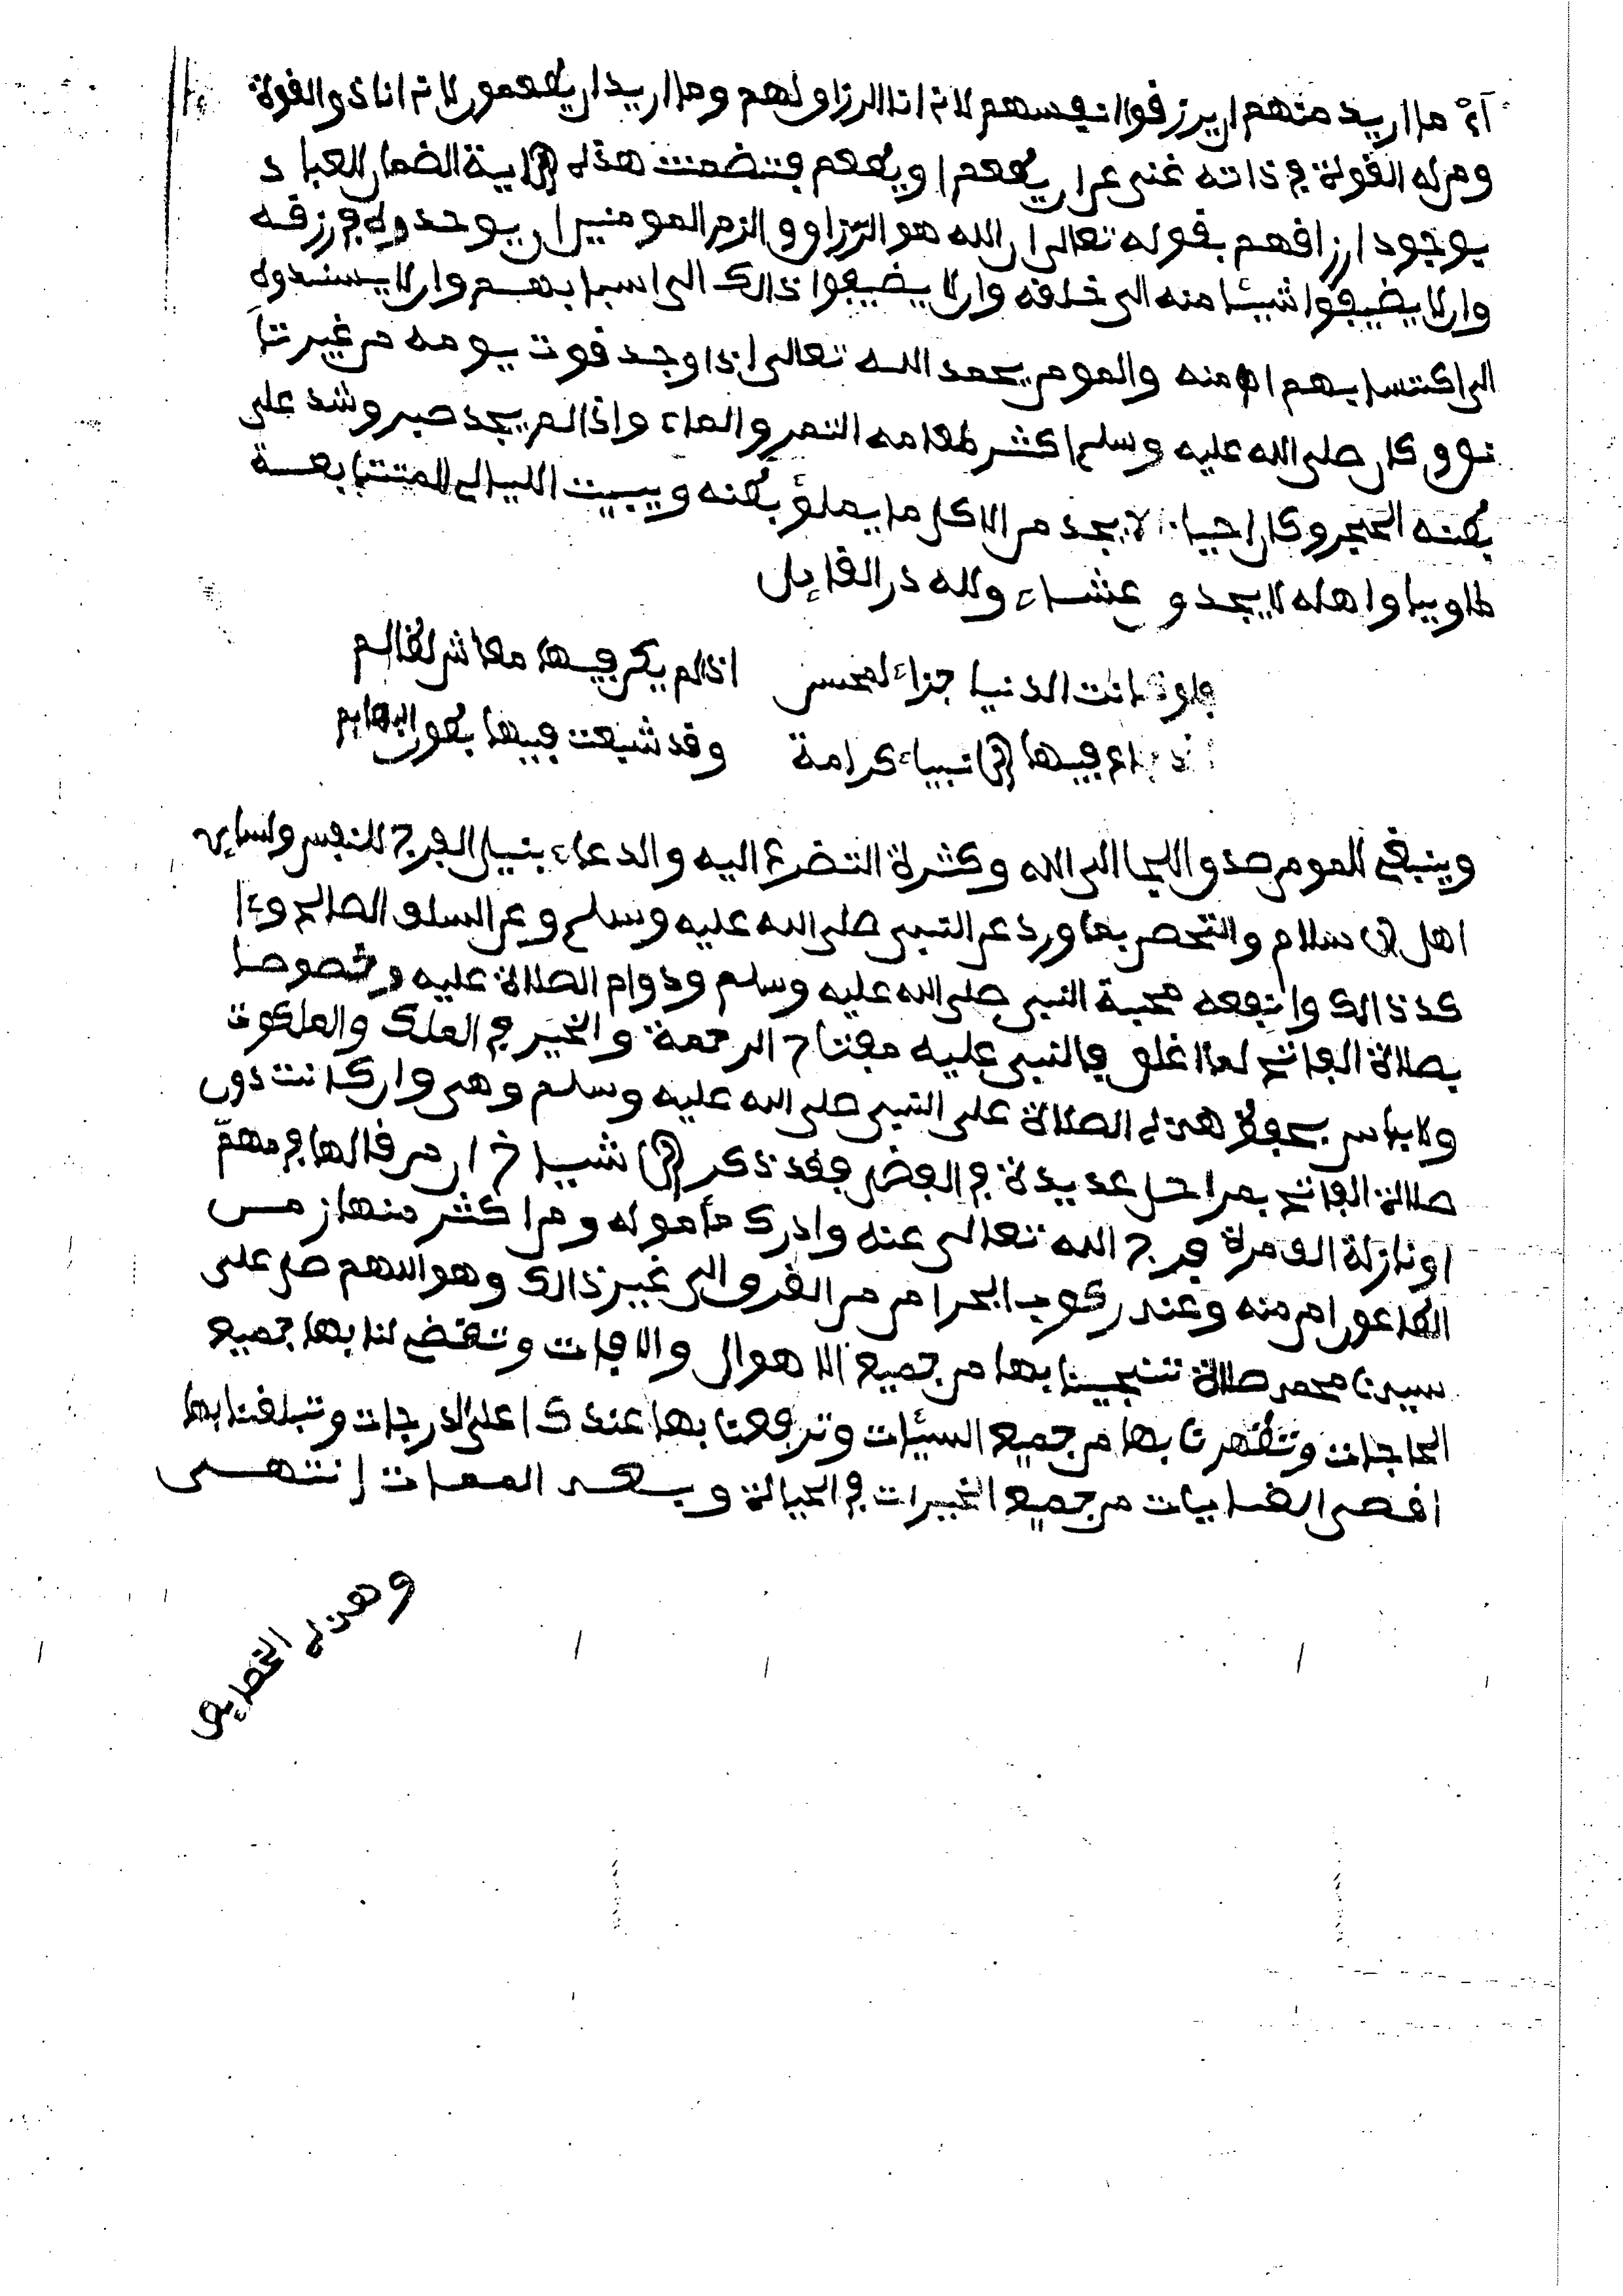 أي ما اريد منهم ان يرزقوا انفسهم لاني انا الرزاق لهم وما اريد ان يطعمون لاني انا ذو القوة
ومن له القوة في ذاته غني عن ان يطعم او يطعم فتضمنت هذه الاية الضمان للعباد
بوجود ارزاقهم بقوله تعالى ان الله هو الرّزاق والزم المومنين ان يوحدوه في رزقه
وان لا يضيفوا شيئا منه الى خلقه وان لا يضيفوا ذالك الى اسبابهم وان لا يسندوه
الى اكتسابهم اه منه والمومن يحمد الله تعالى اذا وجد قوت يومه من غير تأ
نق وكان صلى الله عليه وسلم اكثر طعامه التمر والماء واذا لم يجد صبر وشد على
بطنه الحجر وكان احيانا لا يجد من الاكل ما يملؤ بطنه ويبيت الليالي المتتابعة
طاويا واهله لا يجدو عشاء ولله در القايل
فلو كانت الدنيا جزاء لمحسن اذا لم يكن فيها معاش لظالم
جاع فيها الانبياء كرامة وقد شبعت فيها بطون البهايم
وينبغي للمومن صدق اللجإ الى الله وكثرة التضرع اليه والدعاء بنيل الفرج للنفس ولساير
اهل الاسلام والتحصن بما ورد عن النبي صلى الله عليه وسلم وعن السلف الصالح وءا
كد ذالك وانفعه محبة النبي صلى الله عليه وسلم ودوام الصلاة عليه وخصوصا
بصلاة الفاتح لما اغلق فالنبي عليه مفتاح الرحمة والخير في الملك والملكوت
ولا باس بحفظ هذه الصلاة على النبي صلى الله عليه وسلم وهي وان كانت دون
صلاة الفاتح بمراحل عديدة في الفضل فقد ذكر الاشياخ ان من قالها في مهمّ
او نازلة الف مرة فرج الله تعالى عنه وادرك مأموله ومن اكثر منها زمن
الطاعون امن منه وعند ركوب البحر امن من الغرق الى غير ذالك وهو اللهم صل على
سيدنا محمد صلاة تنجينا بها من جميع الاهوال والافات وتقضي لنا بها جميع
الحاجات وتطهرنا بها من جميع السيئات وترفعنا بها عندك اعلى الدرجات وتبلغنا بها
اقصى الغايات من جميع الخيرات في الحياة وبعد الممات إنتهى
وهذه الخصايص